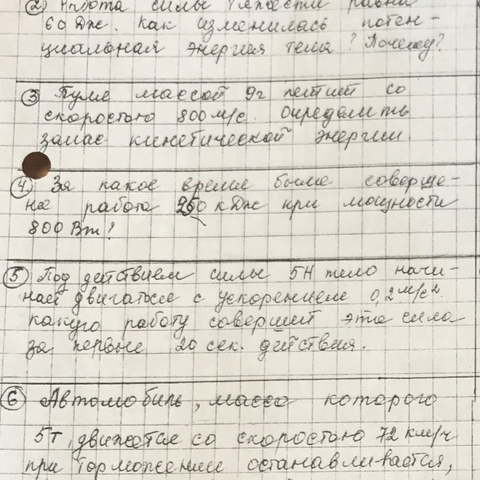 ② Работа силы тяжести равна
60 Дж. Как изменилась потен-
циальная энергия тела? Почему?
③ Пуля массой 9г летит со
скоростью 800 м/с. Определить
запас кинетической энергии.
④ За какое время была соверше-
на работа 250 кДж при мощности
800 Вт?
⑤ Под действием силы 5Н тело начи-
нает двигаться с ускорением 0,2 м/с².
Какую работу совершит эта сила
за первые 20 сек. действия.
⑥ Автомобиль, масса которого
5т, движется со скоростью 72 км/ч
при торможении останавливается,